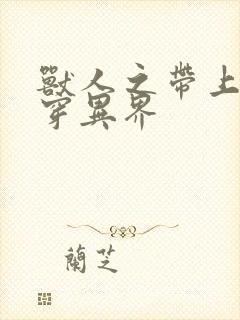 獸人之帶上
穿異界
蘭芝